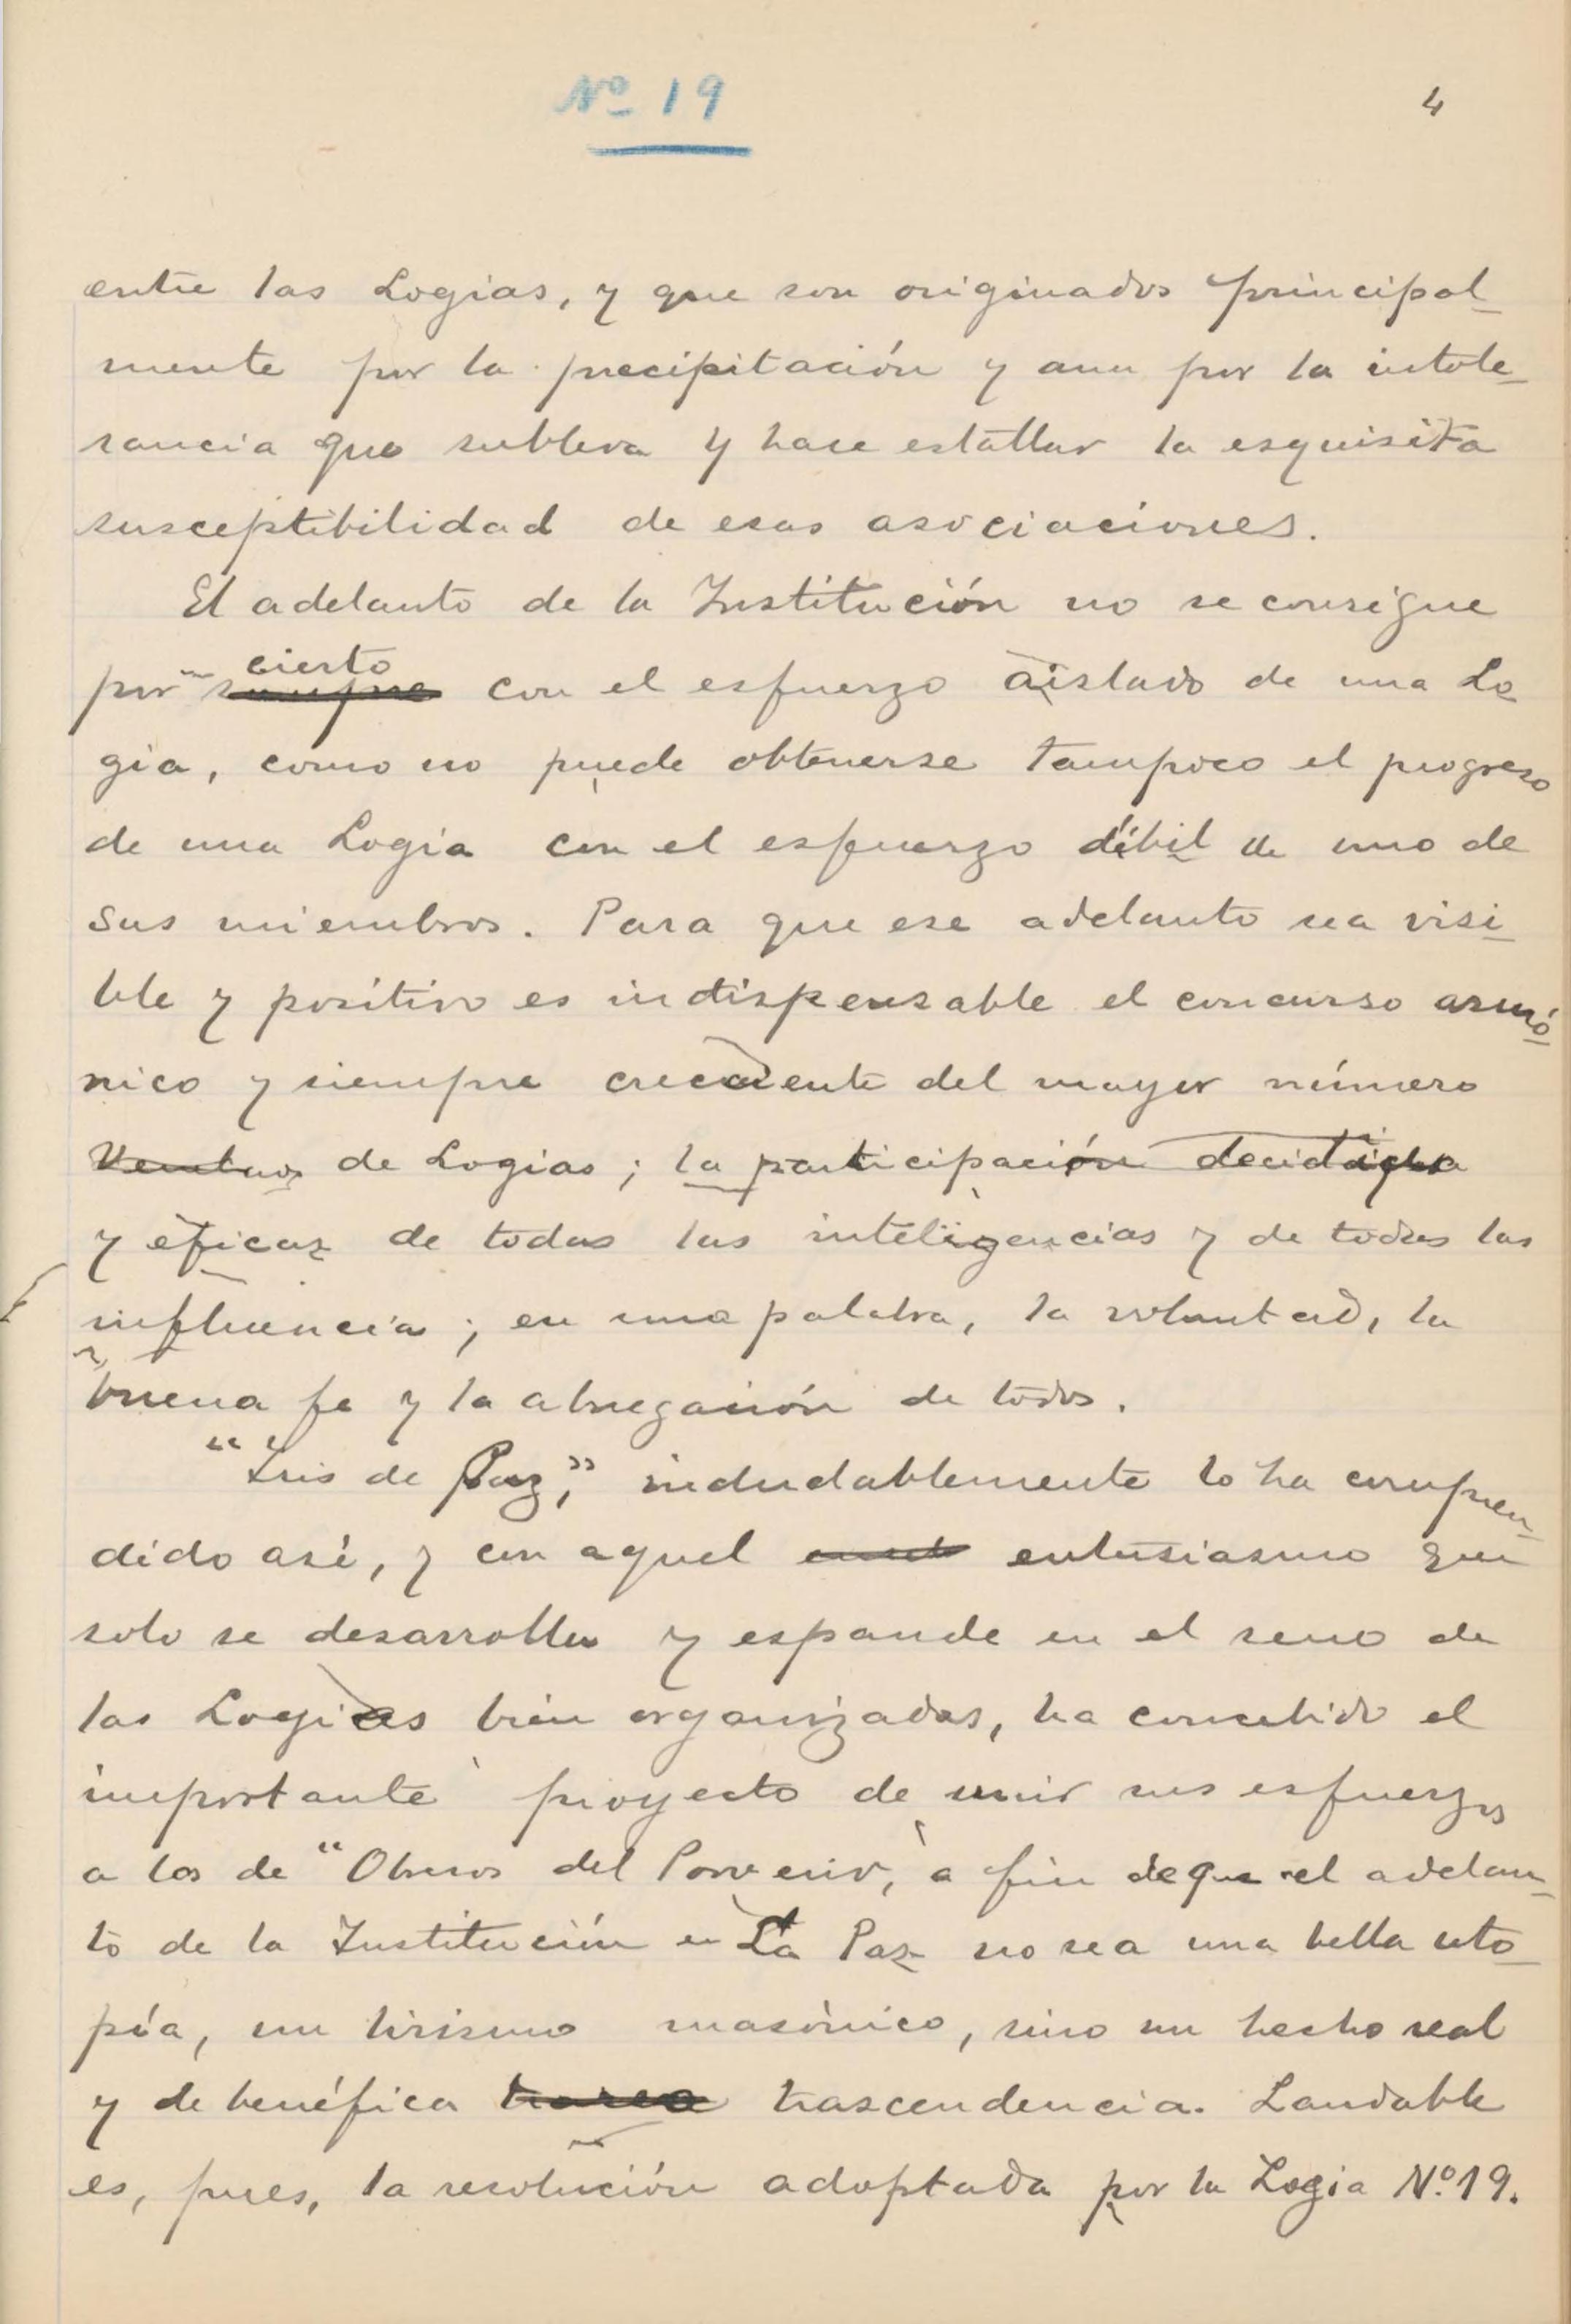 Nº 19
4
entre las Logias, y que son originados principal-
mente por la precipitación y aun por la intole-
rancia que subleva y hace estallar la esquisita
susceptibilidad de esas asociaciones.
El adelanto de la Institución no se consigue
cierto
por siempre con el esfuerzo aislado de una Lo-
gia, como no puede obtenerse tampoco el progreso
de una Logia con el esfuerzo débil de uno de
sus miembros. Para que ese adelanto sea visi-
ble y positivo es indispensable el concurso armó-
nico y siempre creciente del mayor número
de Logias; la participación decidida
y eficaz de todas las inteligencias y de todas las
influencias; en una palabra, la voluntad, la
buena fe y la abnegación de todos.
"Iris de Paz", indudablemente lo ha compren-
dido asi, y con aquel entusiasmo que
solo se desarrolla y espande en el seno de
las Logias bien organizadas, ha concebido el
importante proyecto de unir sus esfuerzos
a los de "Obreros del Porvenir, a fin de que el adelan-
to de la Institución en La Paz no sea una bella uto-
pía, un lirismo masónico, sino un hecho real
y de benéfica tarea trascendencia. Laudable
es, pues, la resolución adoptada por la Logia Nº. 19.